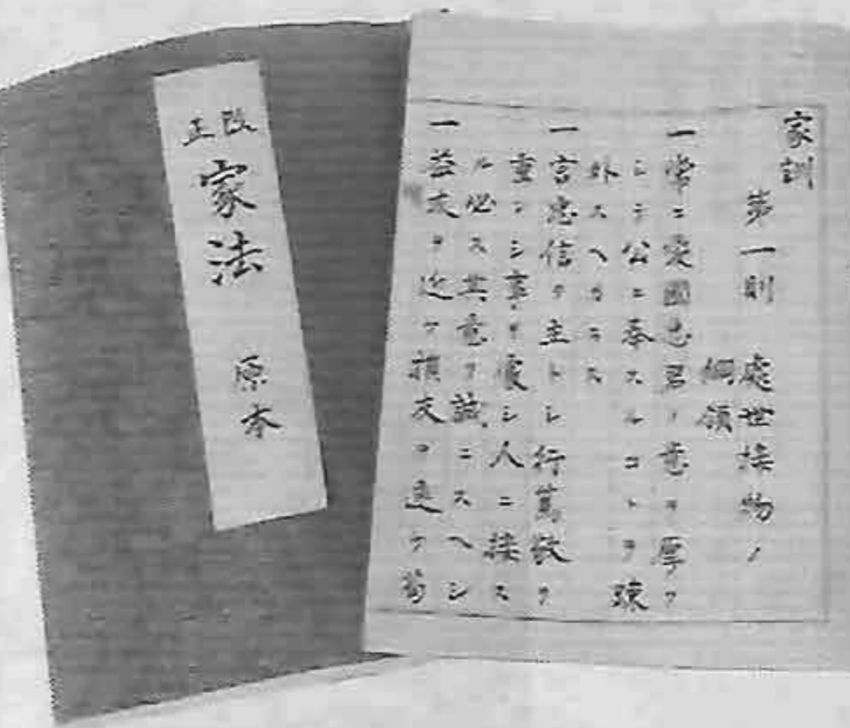 家訓
第一則 處世接物ノ
綱領
一常ニ愛國忠君ノ意ヲ厚フ
シテ公ニ奉スルコトヲ疎
外スヘカラス
一言忠信ヲ主トシ行篤敬ヲ
重ンシ事ヲ處シ人ニ接ス
ル必ス其意ヲ誠ニスヘシ
一益友ヲ近ケ損友ヲ遠ケ苟
改正 家法 原本